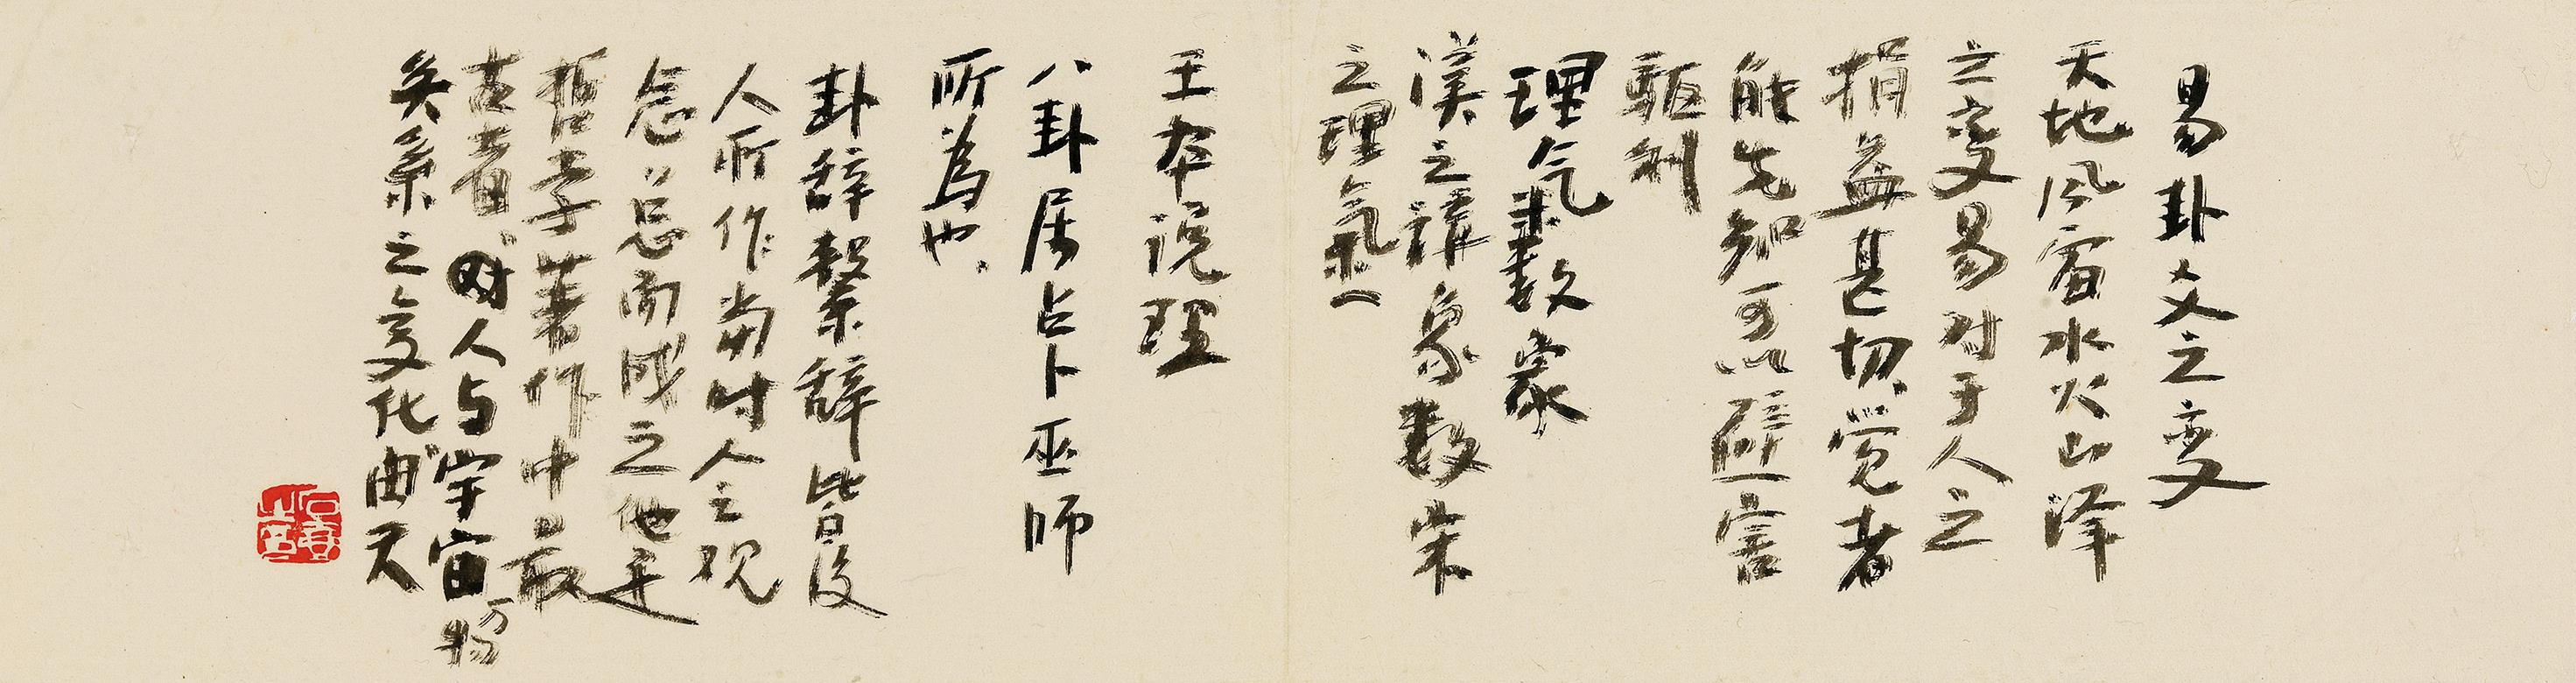 易卦爻之变
天地风雷水火山泽
之变易对于人之
损益甚切觉者
能先知可以避害
驱利
理气象数家
汉之譚象数宋
之理氣一
王本说理
八卦居占卜巫师
所為也
卦辞繫辞皆後
人所作当时人之观
念总而成之他是
哲学著作中最
古者因人与宇宙万物
关系之变化由天